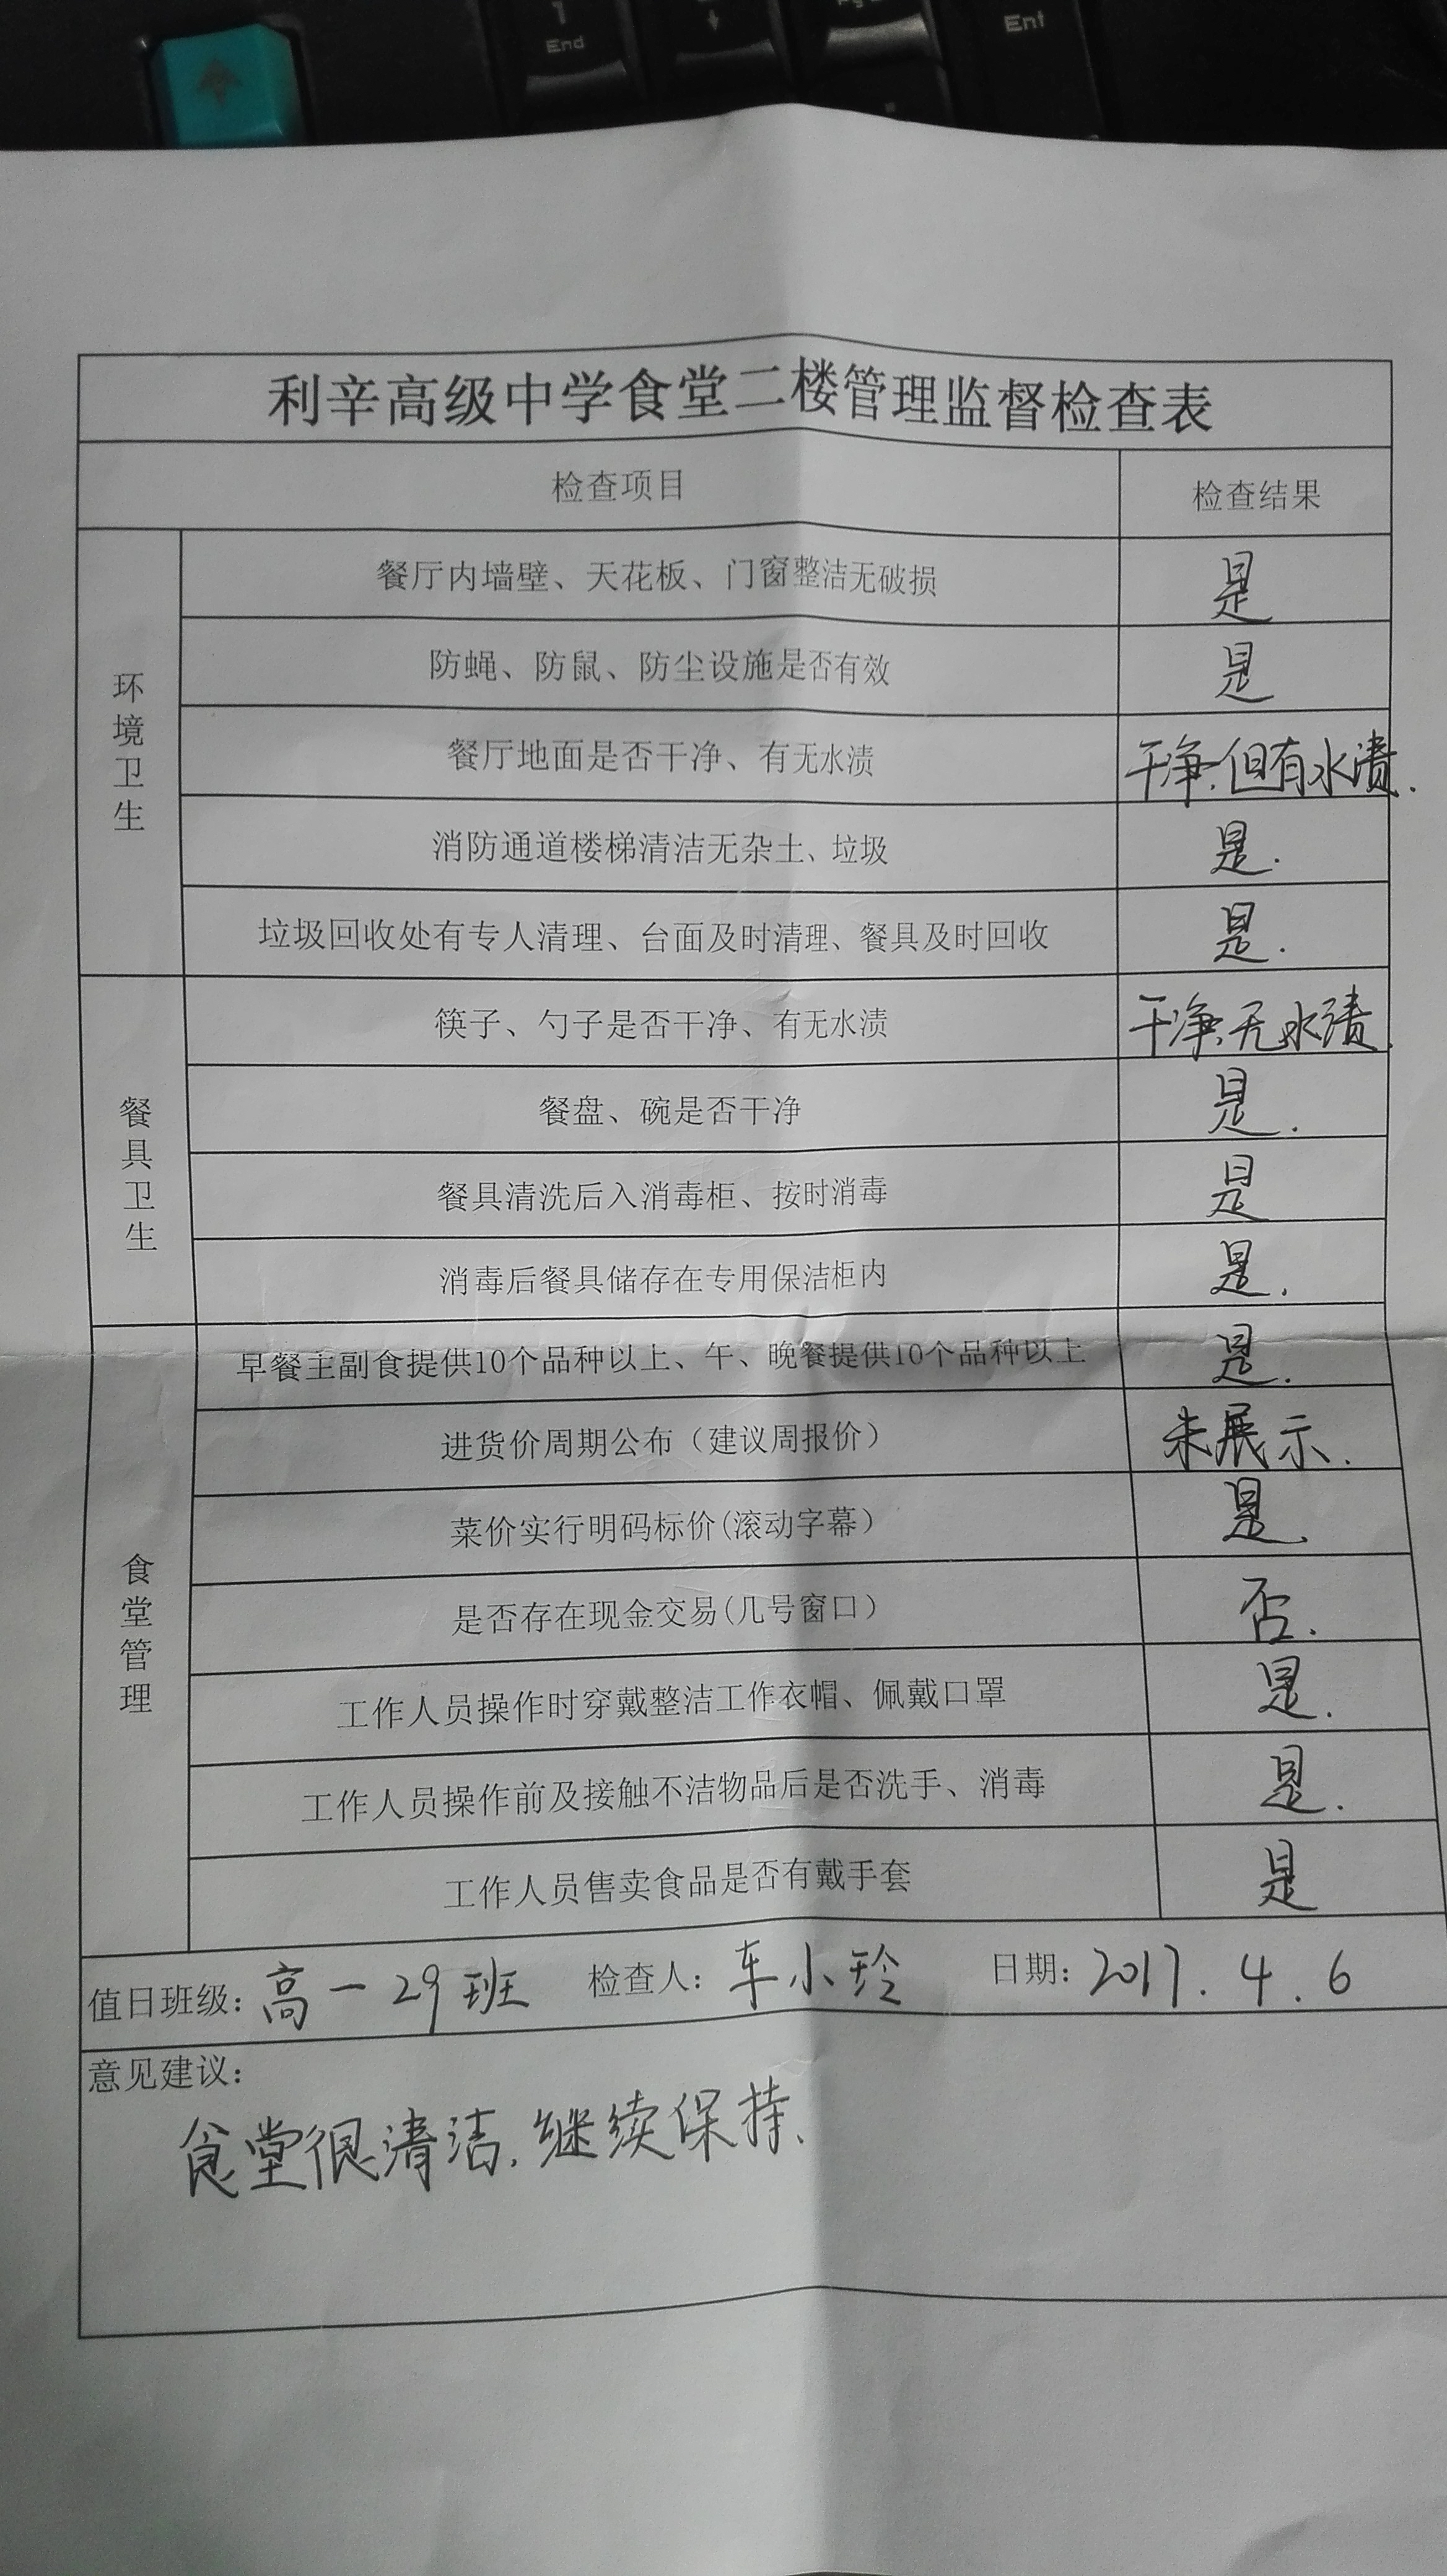 End
Ent
利辛高级中学食堂二楼管理监督检查表
检查项目 检查结果
环境卫生
餐厅内墙壁、天花板、门窗整洁无破损 是
防蝇、防鼠、防尘设施是否有效 是
餐厅地面是否干净、有无水渍 干净.但有水渍.
消防通道楼梯清洁无杂土、垃圾 是.
垃圾回收处有专人清理、台面及时清理、餐具及时回收 是.
餐具卫生
筷子、勺子是否干净、有无水渍 干净.无水渍.
餐盘、碗是否干净 是.
餐具清洗后入消毒柜、按时消毒 是
消毒后餐具储存在专用保洁柜内 是.
食堂管理
早餐主副食提供10个品种以上、午、晚餐提供10个品种以上 是.
进货价周期公布（建议周报价） 未展示.
菜价实行明码标价(滚动字幕） 是.
是否存在现金交易(几号窗口） 否.
工作人员操作时穿戴整洁工作衣帽、佩戴口罩 是.
工作人员操作前及接触不洁物品后是否洗手、消毒 是.
工作人员售卖食品是否有戴手套 是
值日班级：高一29班 检查人：车小玲 日期：2017.4.6
意见建议：
食堂很清洁.继续保持.